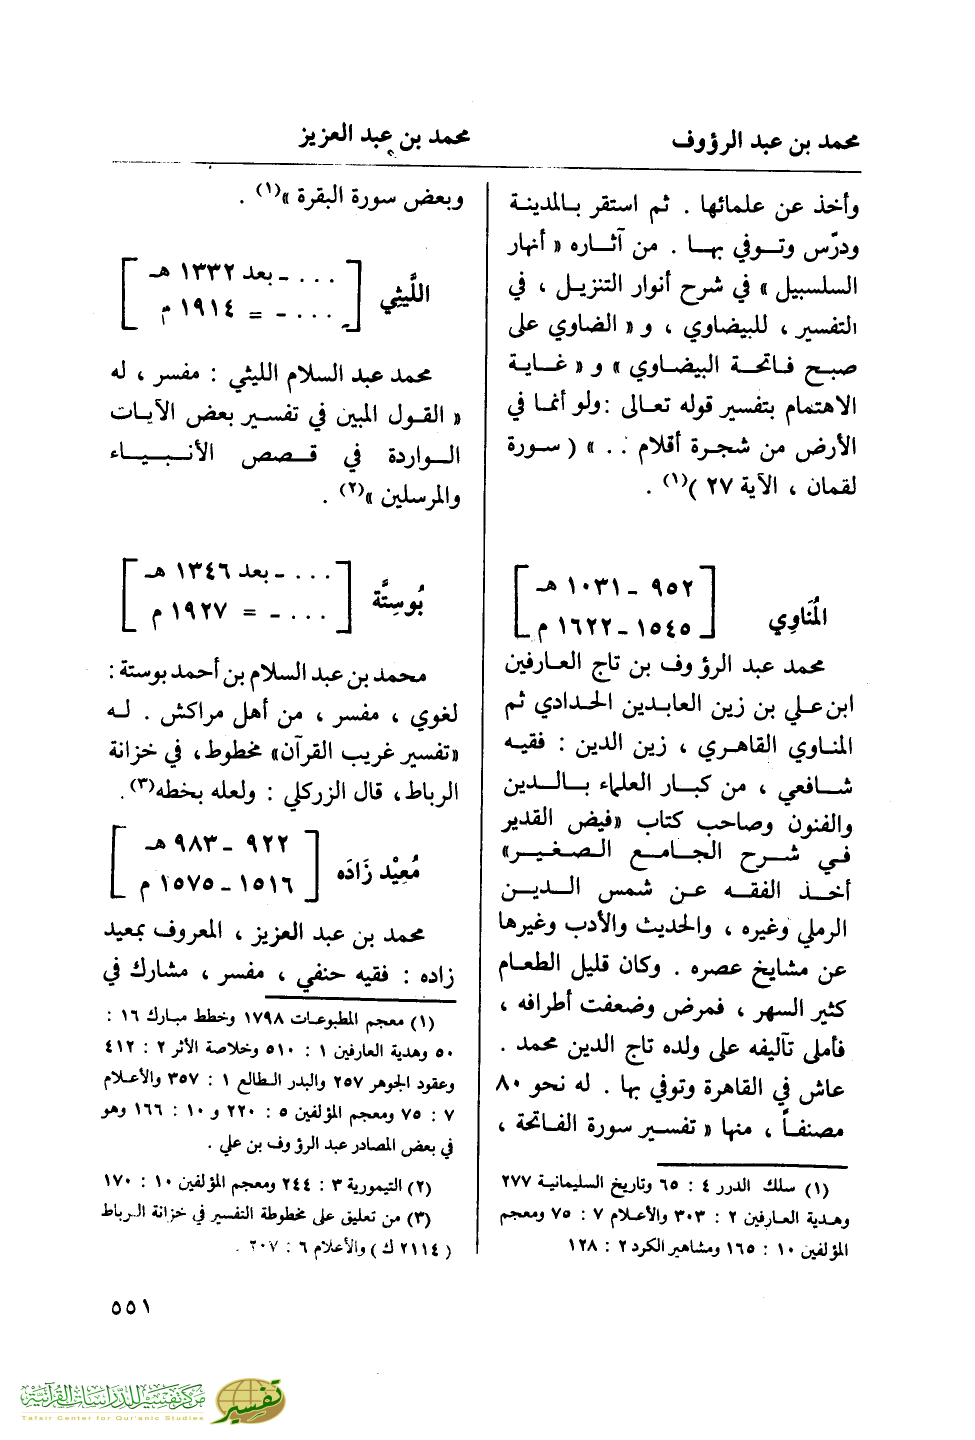 محمد بن عبد الرؤوف
محمد بن عبد العزيز
وأخذ عن علمائها . ثم استقر بالمدينة
ودرّس وتوفي بها . من آثاره « أنهار
السلسبيل » في شرح أنوار التنزيل ، في
التفسير ، للبيضاوي ، و « الضاوي على
صبح فاتحة البيضاوي » و « غاية
الاهتمام بتفسير قوله تعالى :ولو أنما في
الأرض من شجرة أقلام . . » ( سورة
لقمان ، الآية ٢٧ )(١) .
المُنَاوِي [ ٩٥٢ - ١٠٣١ هـ
١٥٤٥ - ١٦٢٢ م ]
محمد عبد الرؤوف بن تاج العارفين
ابن علي بن زين العابدين الحدادي ثم
المناوي القاهري ، زين الدين : فقيه
شافعي ، من كبار العلماء بالدين
والفنون وصاحب كتاب «فيض القدير
في شرح الجامع الصغير»
أخذ الفقه عن شمس الدين
الرملي وغيره ، والحديث والأدب وغيرها
عن مشايخ عصره . وكان قليل الطعام
كثير السهر ، فمرض وضعفت أطرافه ،
فأملى تآليفه على ولده تاج الدين محمد .
عاش في القاهرة وتوفي بها . له نحو ٨٠
مصنفاً ، منها « تفسير سورة الفاتحة ،
(١) سلك الدرر ٤ : ٦٥ وتاريخ السليمانية ٢٧٧
وهدية العارفين ٢ : ٣٠٣ والأعلام ٧ : ٧٥ ومعجم
المؤلفين ١٠ : ١٦٥ ومشاهير الكرد ٢ : ١٢٨
وبعض سورة البقرة »(١) .
اللَّيثي [ . . . - بعد ١٣٣٢ هـ
. . . - = ١٩١٤ م ]
محمد عبد السلام الليثي : مفسر ، له
« القول المبين في تفسير بعض الآيات
الواردة في قصص الأنبياء
والمرسلين »(٢) .
بُوسِتَّة [ . . . - بعد ١٣٤٦ هـ
. . . - = ١٩٢٧ م ]
محمد بن عبد السلام بن أحمد بوستة :
لغوي ، مفسر ، من أهل مراكش . له
«تفسير غريب القرآن» مخطوط، في خزانة
الرباط، قال الزركلي : ولعله بخطه(٣).
مُعِيْد زَادَه [ ٩٢٢ - ٩٨٣ هـ
١٥١٦ - ١٥٧٥ م ]
محمد بن عبد العزيز ، المعروف بمعيد
زاده : فقيه حنفي ، مفسر ، مشارك في
(١) معجم المطبوعات ١٧٩٨ وخطط مبارك ١٦ :
٥٠ وهدية العارفين ١ : ٥١٠ وخلاصة الأثر ٢ : ٤١٢
وعقود الجوهر ٢٥٧ والبدر الطالع ١ : ٣٥٧ والأعلام
٧ : ٧٥ ومعجم المؤلفين ٥ : ٢٢٠ و ١٠ : ١٦٦ وهو
في بعض المصادر عبد الرؤوف بن علي .
(٢) التيمورية ٣ : ٢٤٤ ومعجم المؤلفين ١٠ : ١٧٠
(٣) من تعليق على مخطوطة التفسير في خزانة الرباط
( ٢١١٤ ك ) والأعلام ٦ : ٢٠٧ .
٥٥١
مركز تفسير للدراسات القرآنية
Tafsir Center for Qur'anic Studies
تفسير